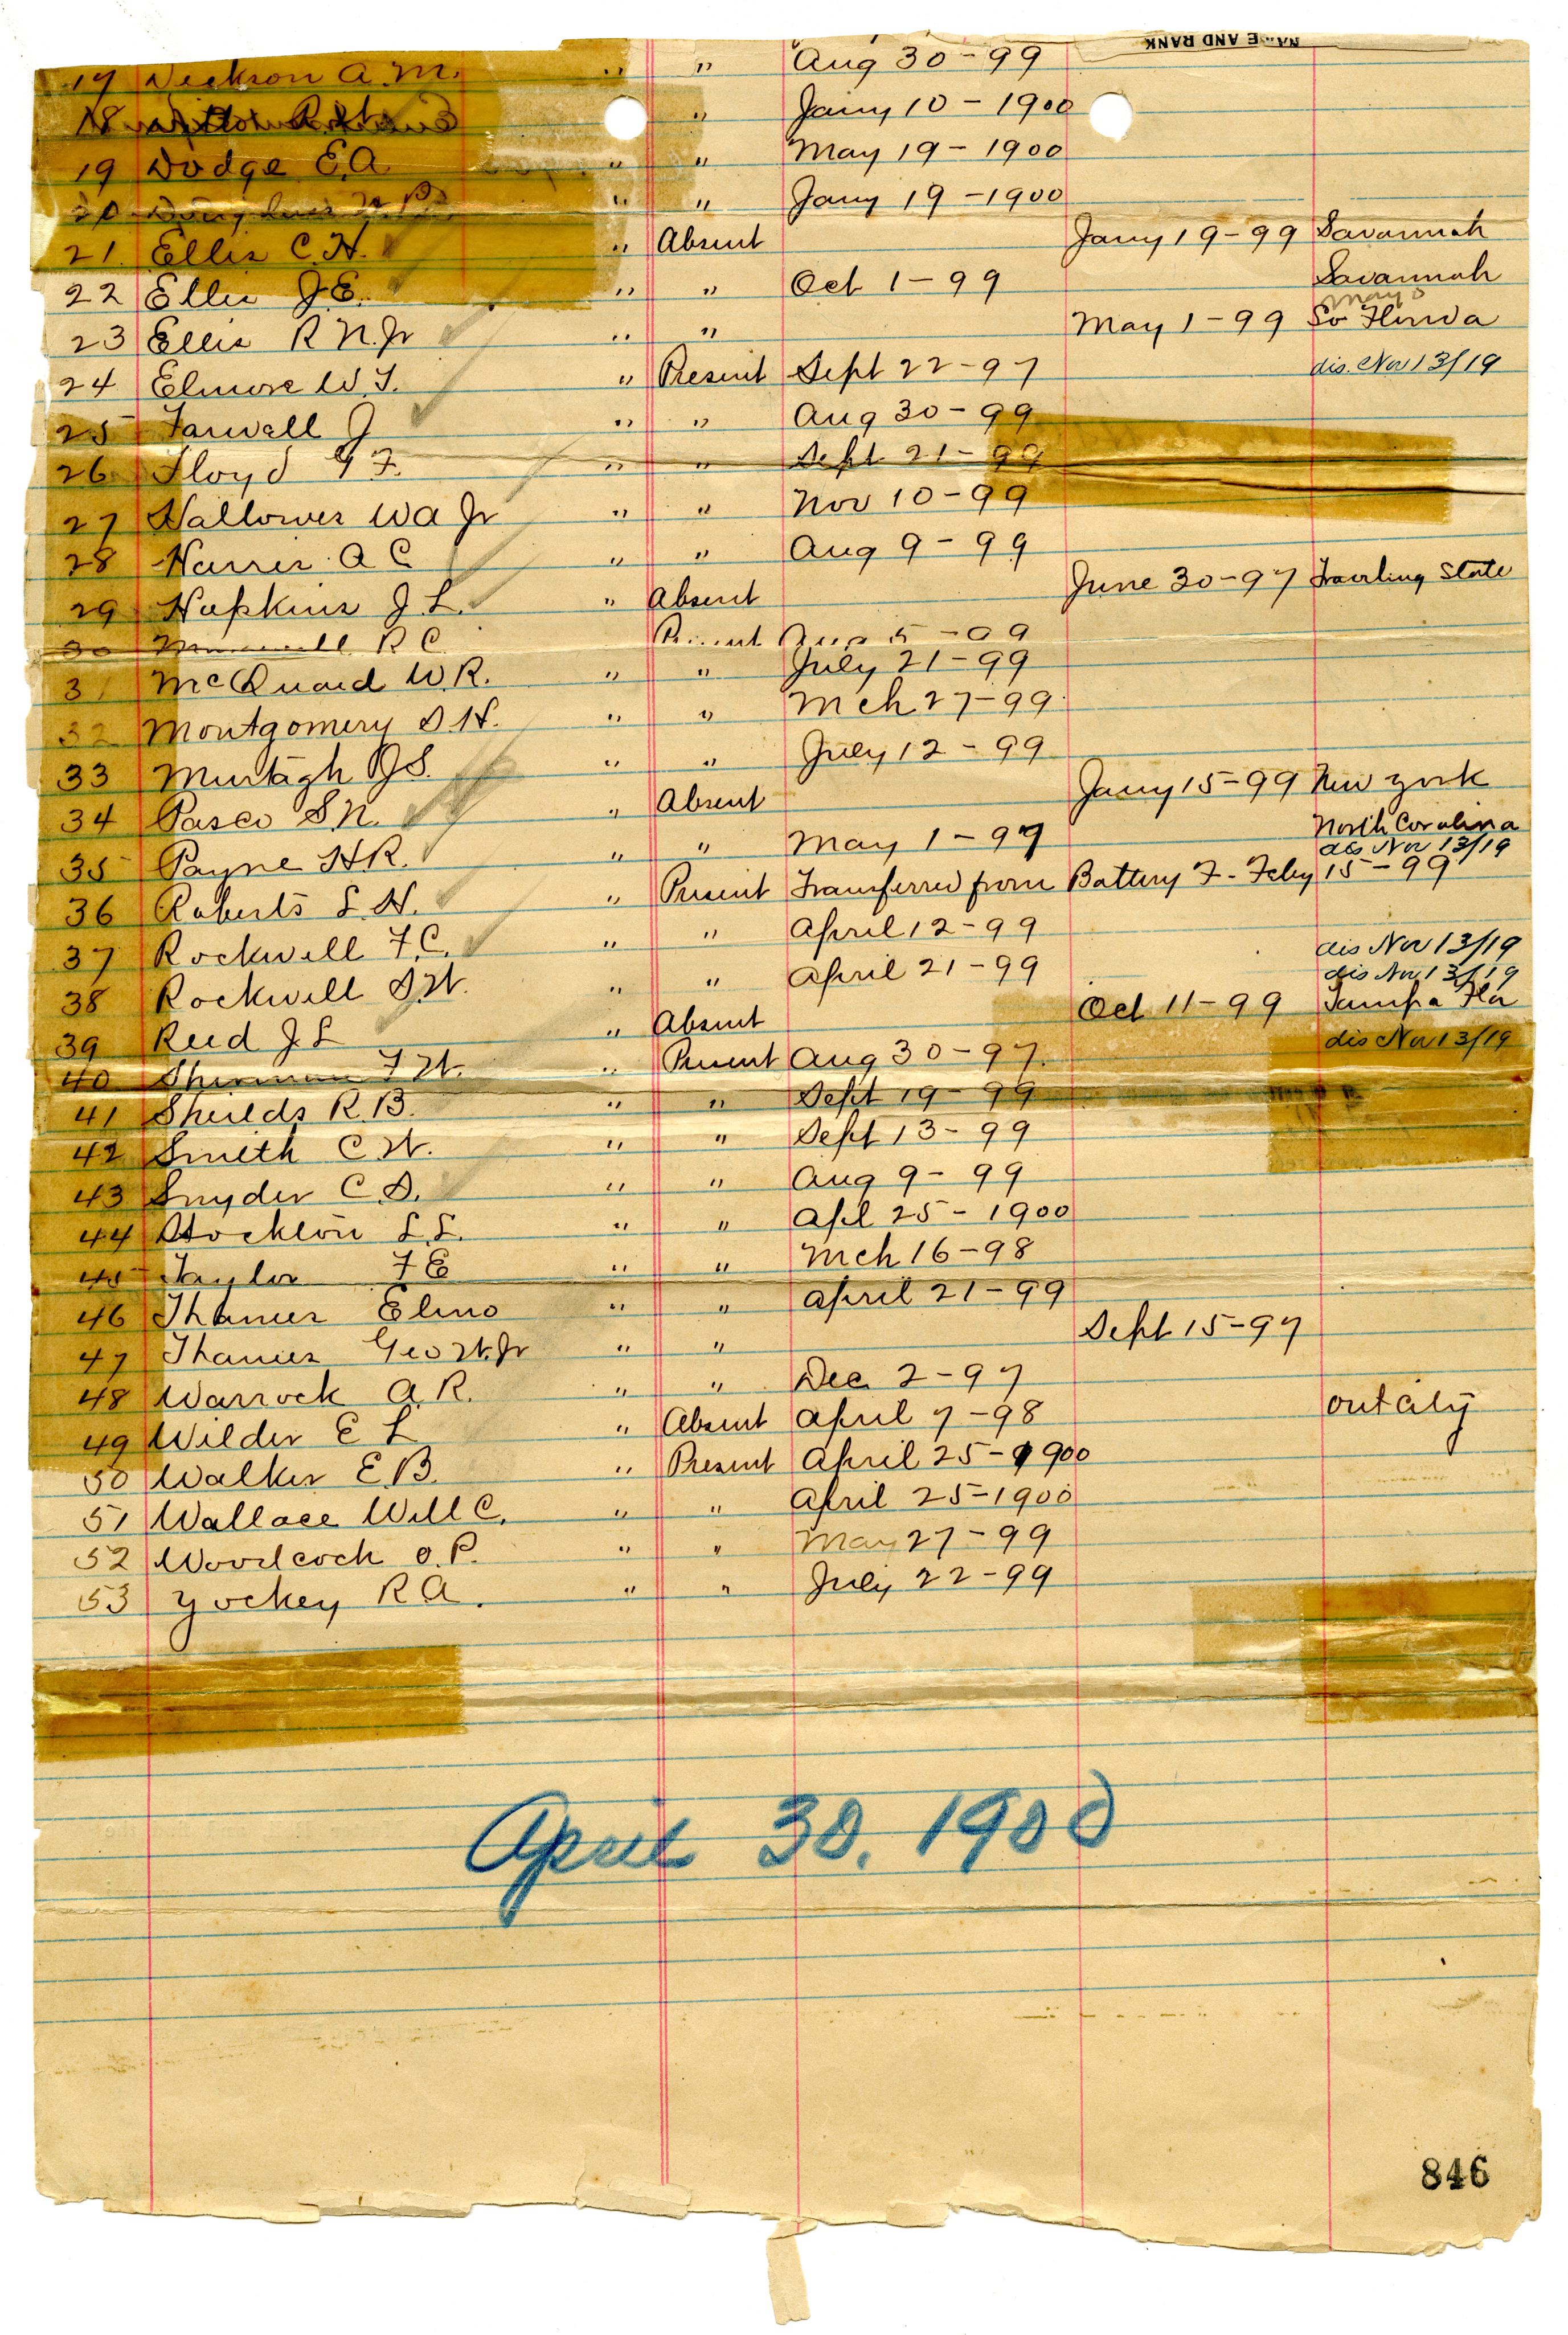 NAME AND RANK
17 Dickson A. M. " " Aug 30-99
18 " " Jany 10-1900
19 Dodge E.A " " May 19-1900
20 " " Jany 19-1900
21. Ellis C. H. " Absent Jany 19-99 Savannah
22 Ellis J. E. " " Oct 1-99 Savannah
23 Ellis R N. Jr " " May 1-99 So Florida
24 Elmore W. T. " Present Sept 22-97 dis. Nov 13/19
25 Farwell J " " Aug 30-99
26 Floyd G F. " " Sept 21-99
27 Hallowes WA Jr " " Nov 10-99
28 Harris A C " " Aug 9-99
29 Hopkins J L. " Absent June 30-97 Traveling State
30 R C Present Aug 5-99
31 McQuaid W. R. " " July 21-99
32 Montgomery D. H. " " Mch 27-99
33 Murtagh J S. " " July 12-99
34 Pasco S. N. " Absent Jany 15-99 New York
35 Payne H. R. " " May 1-97 North Carolina
dis Nov 13/19
36 Roberts L. H. " Present Transferred from Battery F- Feby 15-99
37 Rockwell F. C. " " April 12-99 dis Nov 13/19
38 Rockwell S. W. " " April 21-99 dis Nov 13/19
39 Reed J L " Absent Oct 11-99 Tampa Fla
40 Sherman F W. " Present Aug 30-97. dis Nov 13/19
41 Sheilds R. B. " " Sept 19-99
42 Smith C W. " " Sept 13-99
43 Snyder C. D. " " Aug 9-99
44 Stockton L. L. " " Apl 25-1900
45 Taylor F E " " Mch 16-98
46 Thames Elmo " " April 21-99
47 Thames Geo W. Jr " " Sept 15-97
48 Warrock A. R. " " Dec 2-97
49 Wilder E L " Absent April 7-98 out city
50 Walker E. B. " Present April 25-1900
51 Wallace Will C. " " April 25-1900
52 Woodcock O. P. " " May 27-99
53 Yockey R A. " " July 22-99
April 30, 1900
846